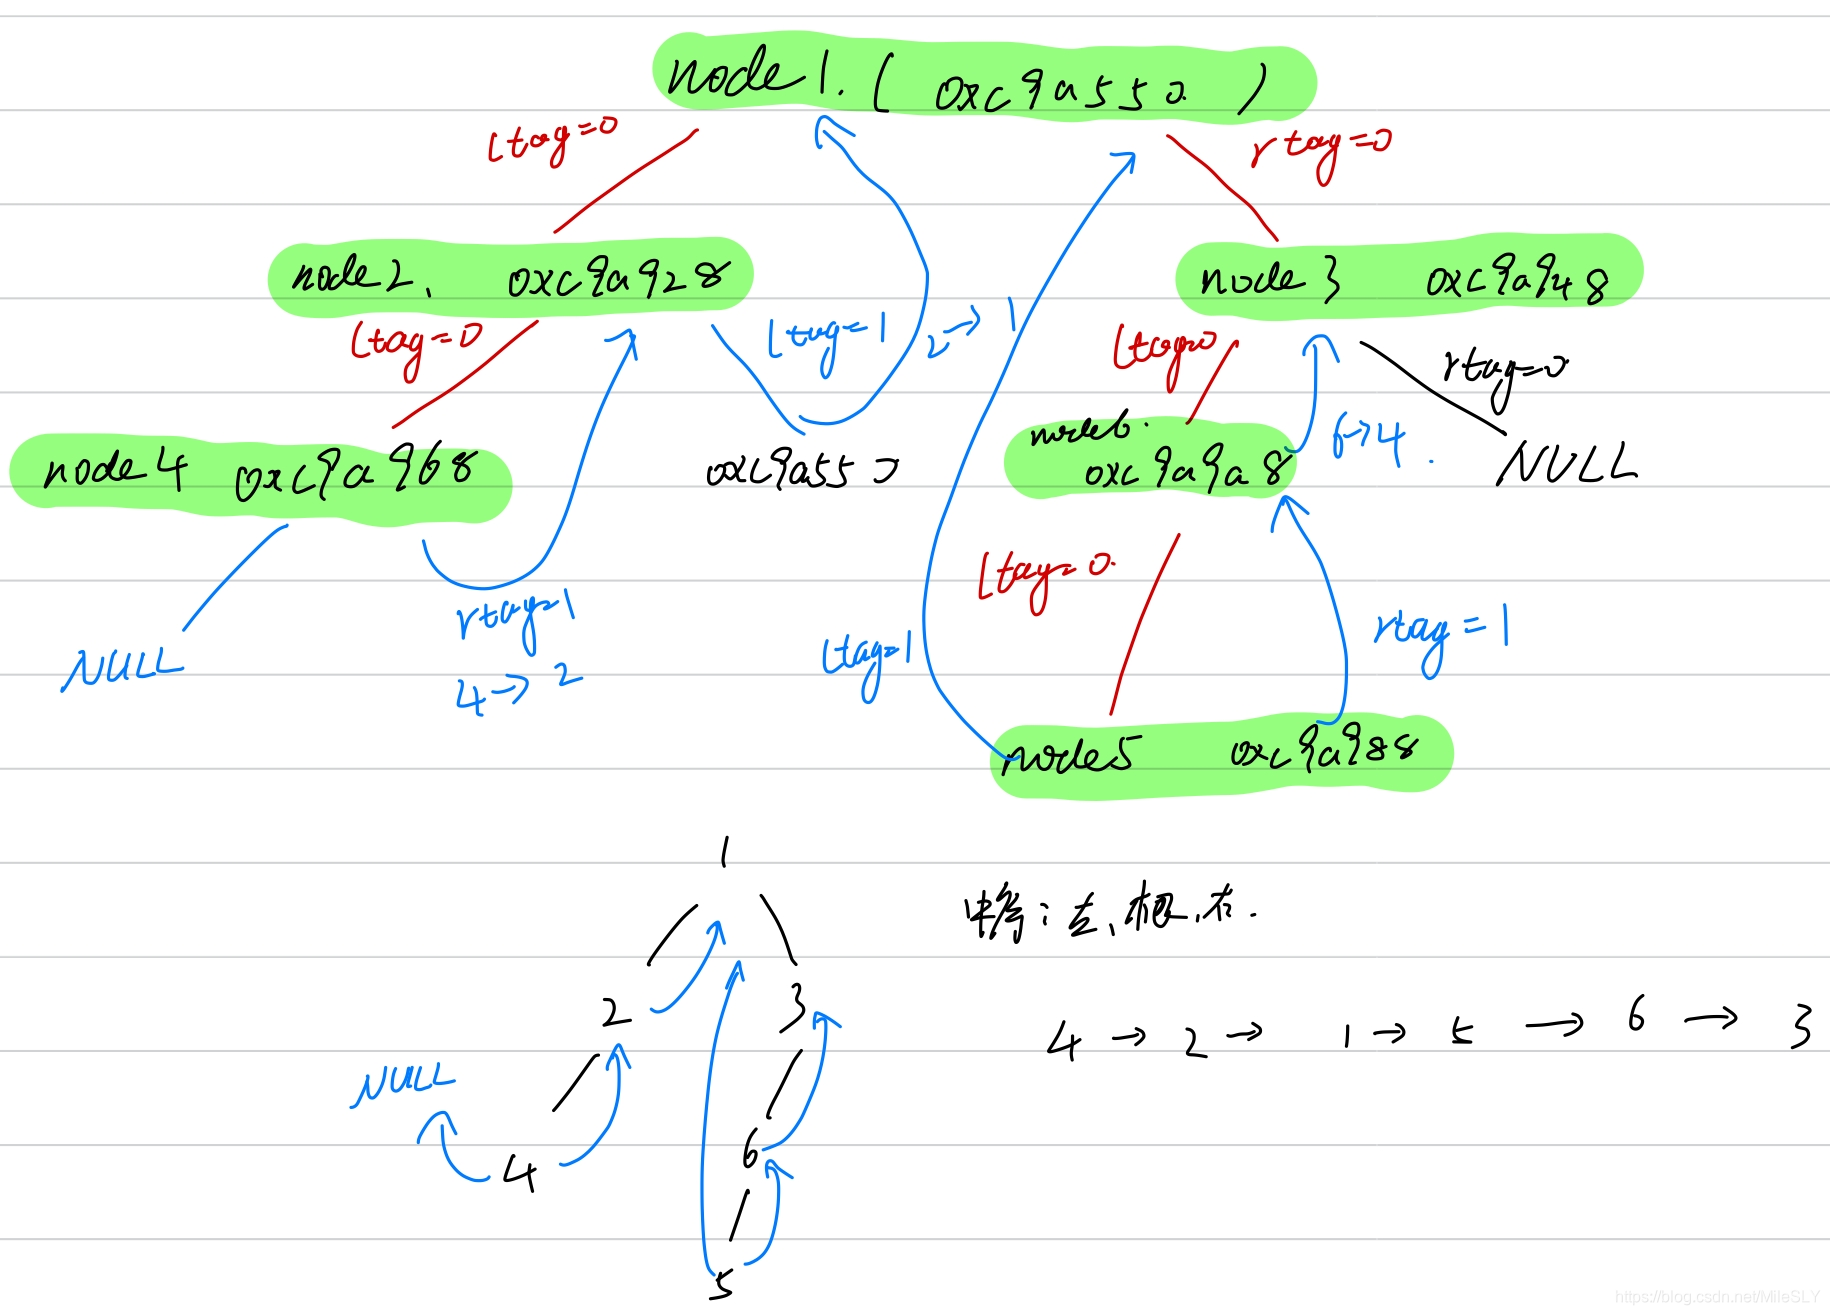 node1. ( 0xc9a550 )
ltag=0
rtag=0
node2. 0xc9a928
node 3 0xc9a948
ltag=0
ltag=1
2→1
ltag=0
rtag=0
node4 0xc9a968
0xc9a550
node6.
0xc9a9a8
6→4.
NULL
ltag=0.
rtag=1
4→2
NULL
ltag=1
rtag=1
node5 0xc9a988
1
中序:左、根、右.
2 3
4→2→1→5→6→3
NULL
4
6
5
https://blog.csdn.net/MileSLY